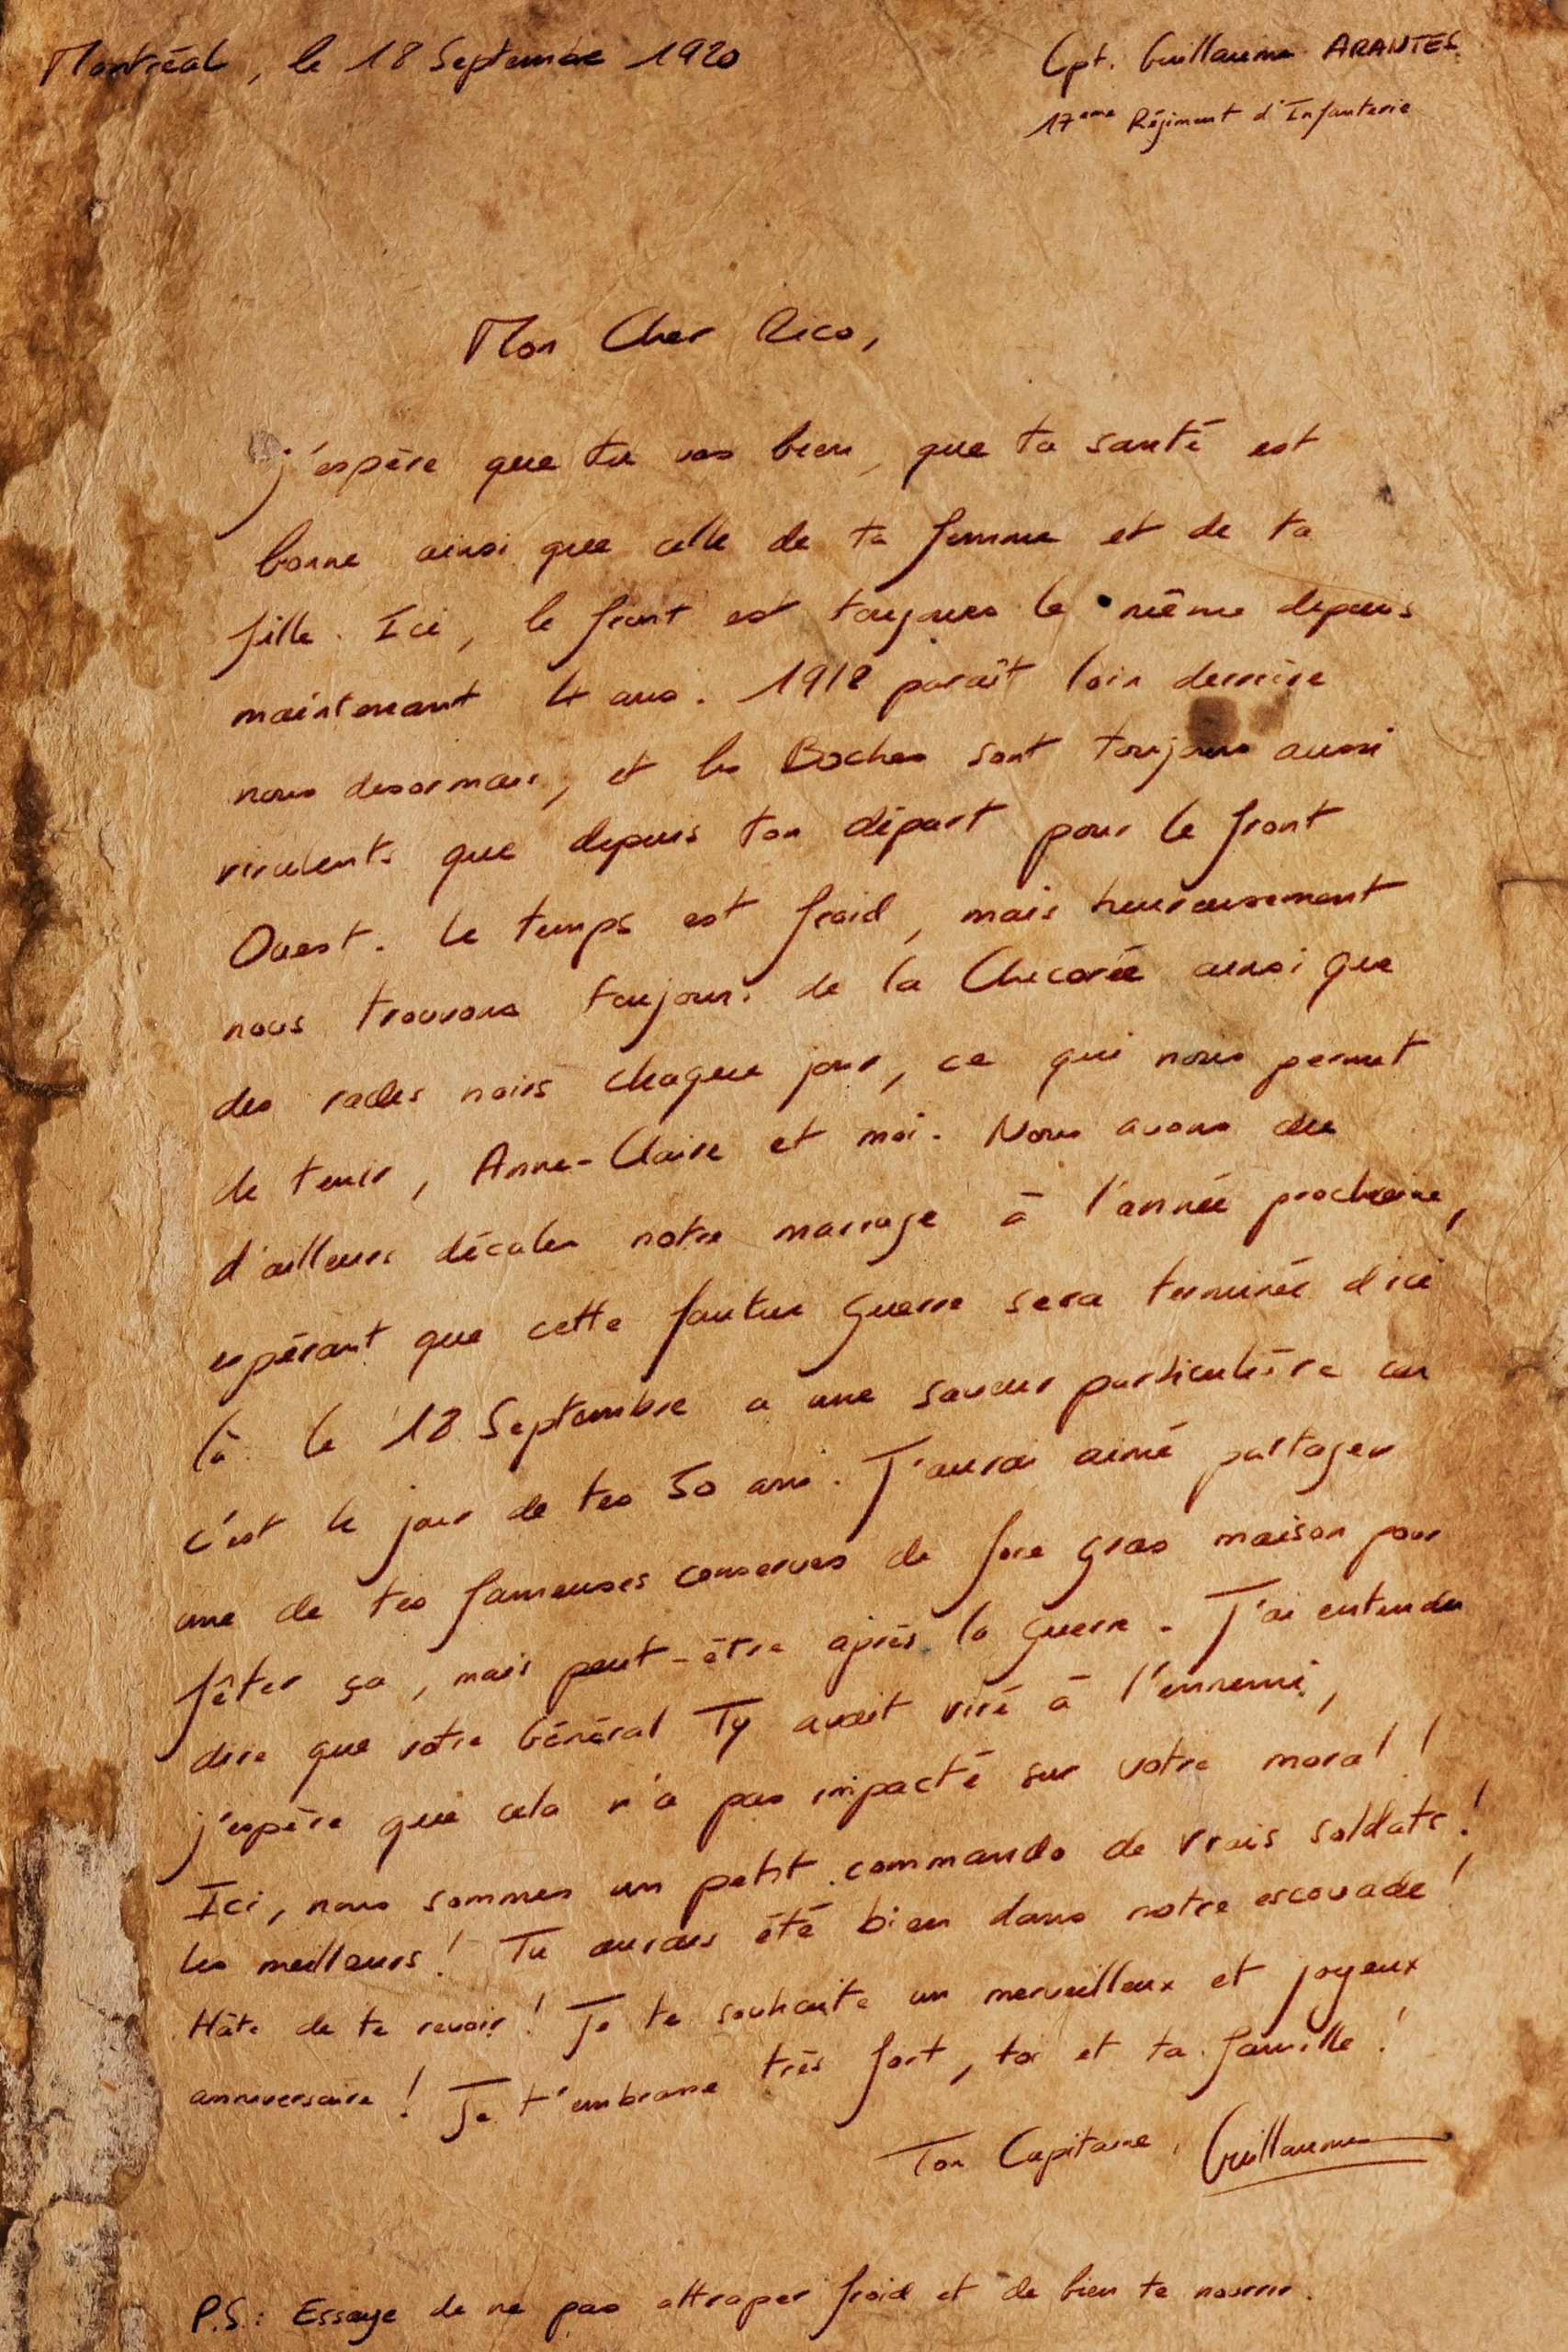 Montréal, le 18 Septembre 1920
Cpt. Guillaume ARANTES
17ème Régiment d'Infanterie
Mon Cher Rico,
j'espère que tu vas bien, que ta santé est
bonne ainsi que celle de ta femme et de ta
fille. Ici, le front est toujours le même depuis
maintenant 4 ans. 1918 paraît loin derrière
nous desormais, et les Boches sont toujours aussi
virulents que depuis ton départ pour le front
Ouest. Le temps est froid, mais heureusement
nous trouvons toujours de la Chicorée ainsi que
des radis noirs chaque jour, ce qui nous permet
de tenir, Anne-Claire et moi. Nous avons du
d'ailleurs décaler notre mariage à l'année prochaine,
espérant que cette foutue guerre sera terminée d'ici
là. Le 18 Septembre a une saveur particulière car
c'est le jour de tes 50 ans. J'aurai aimé partager
une de tes fameuses conserves de foie gras maison pour
fêter ça, mais peut-être après la guerre. J'ai entendu
dire que votre Général Ty avait viré à l'ennemi,
j'espère que cela n'a pas impacté sur votre moral !
Ici, nous sommes un petit commando de vrais soldats !
les meilleurs ! Tu aurais été bien dans notre escouade !
Hâte de te revoir ! Je te souhaite un merveilleux et joyeux
anniversaire ! Je t'embrasse très fort, toi et ta famille !
Ton Capitaine, Guillaume
P.S.: Essaye de ne pas attraper froid et de bien te nourrir.